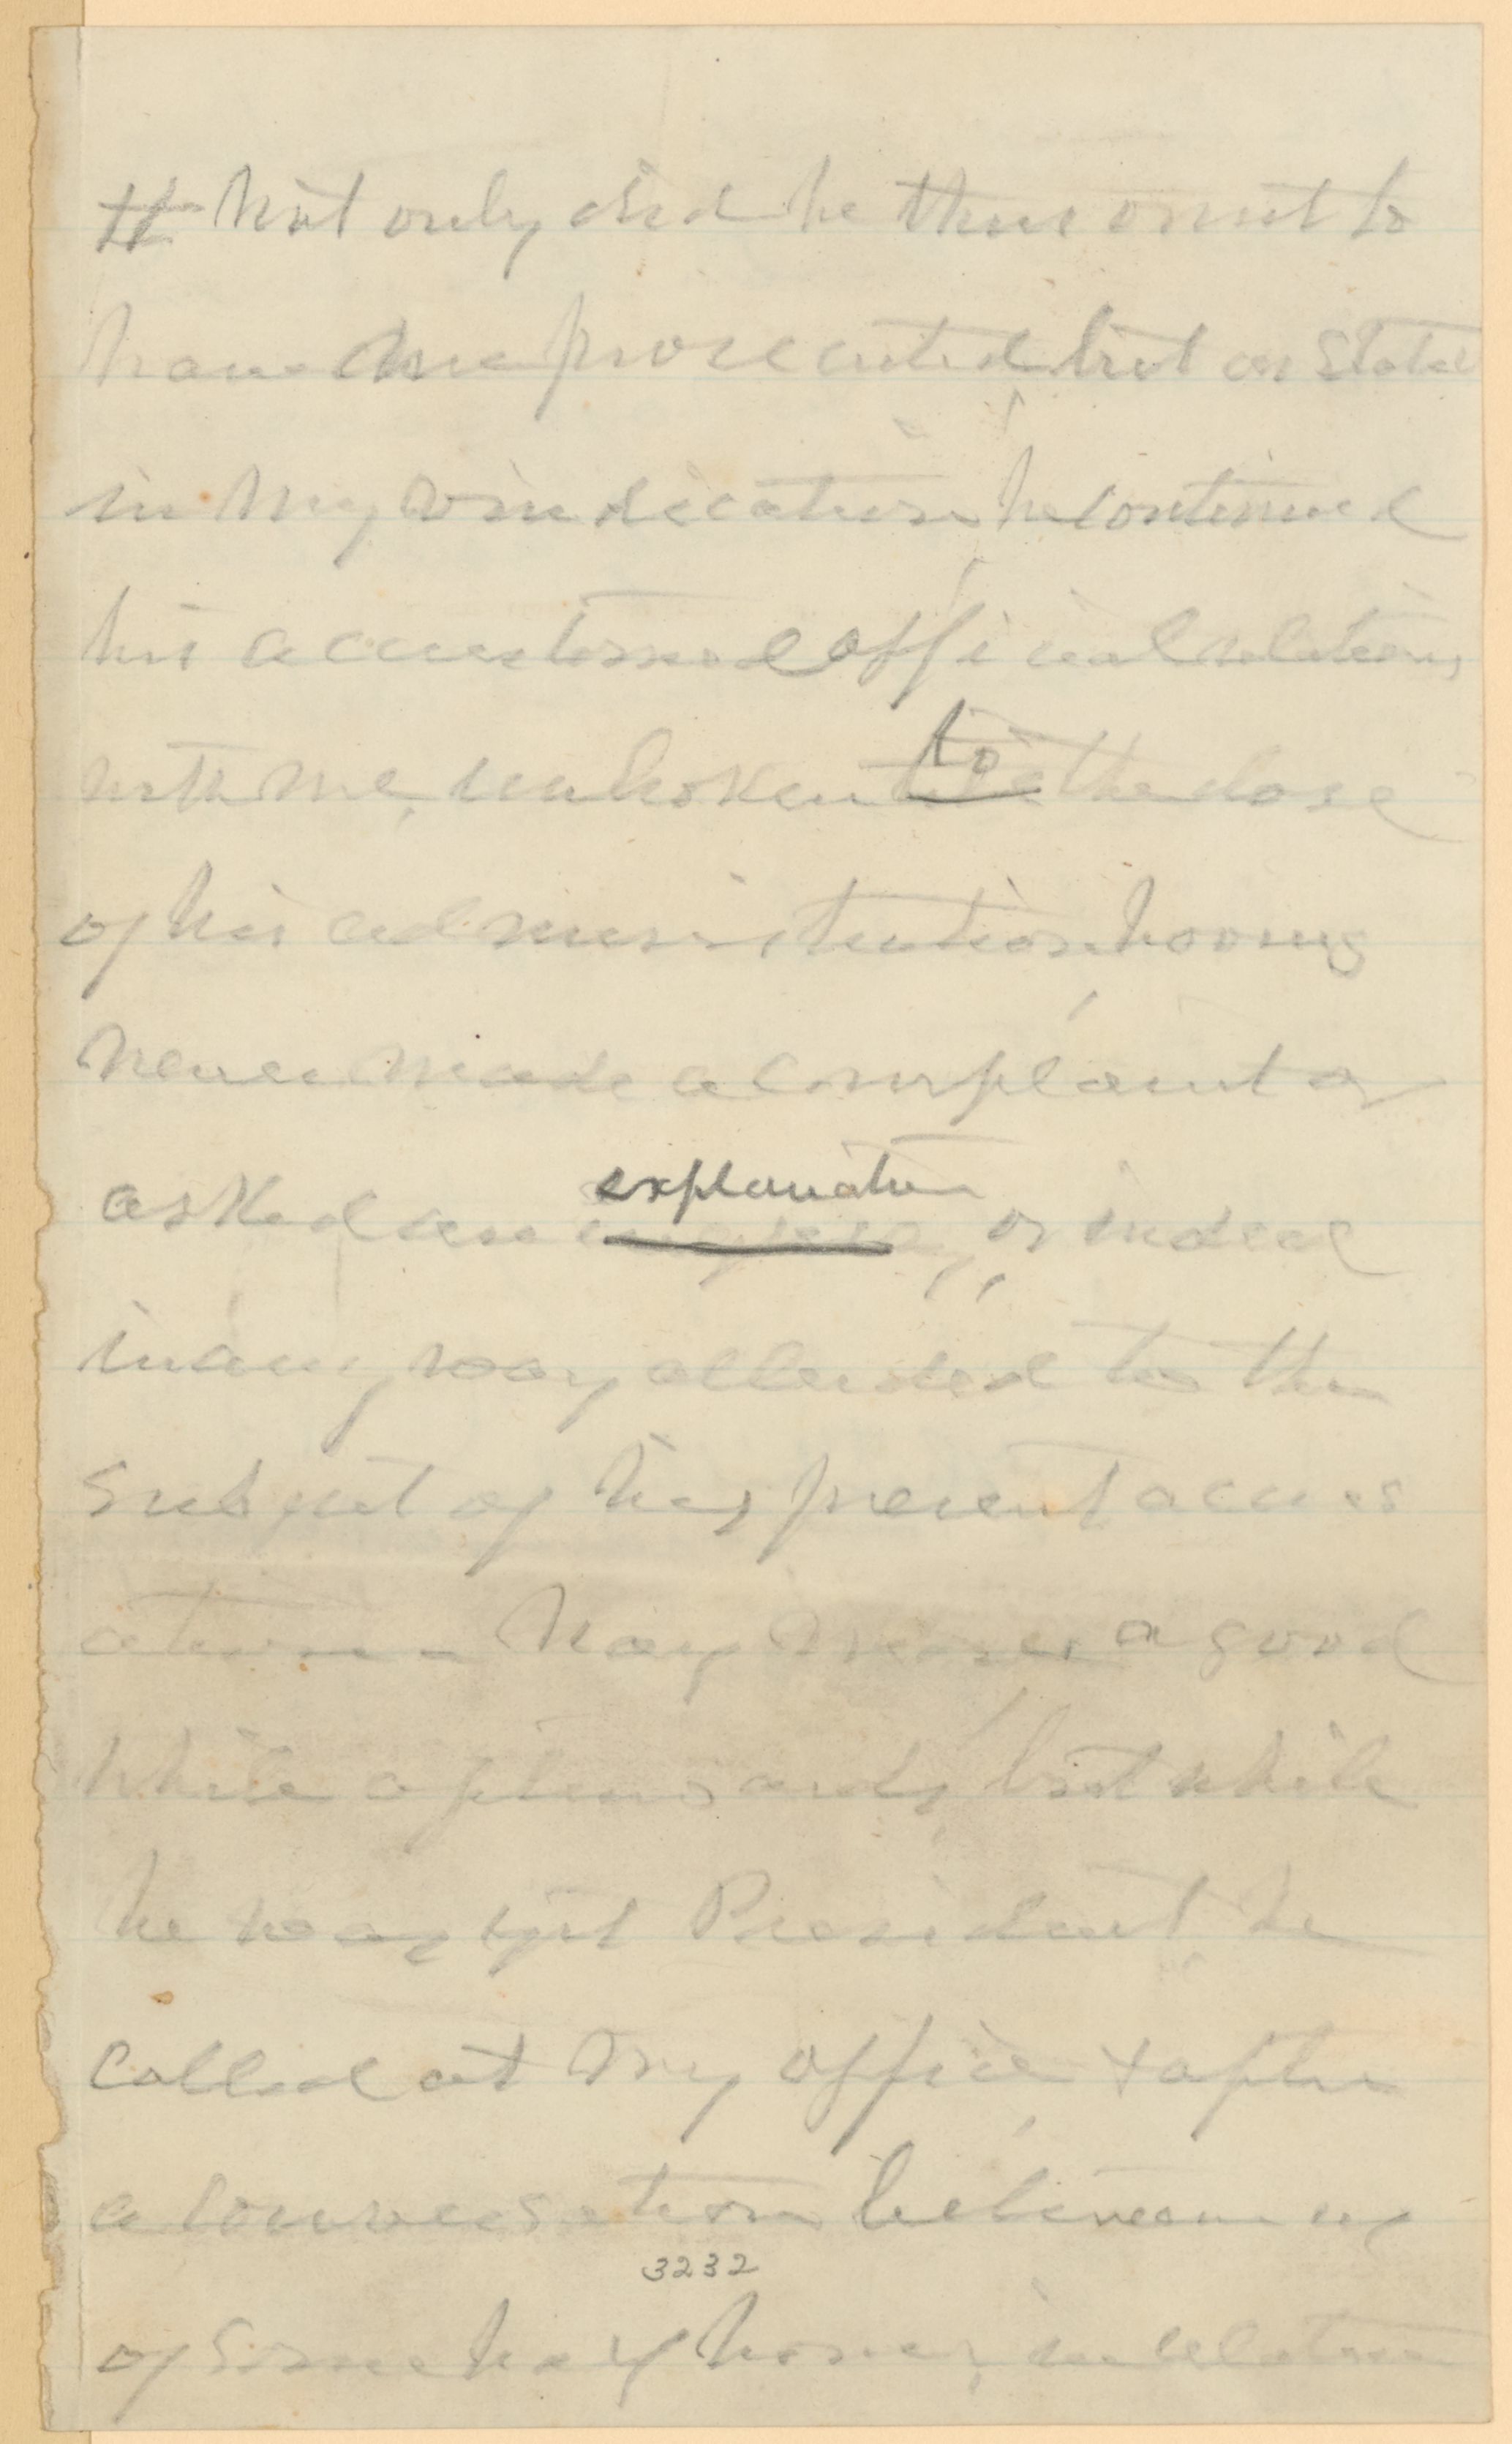 # Not only did he thus omit to
have me prosecuted, but as stated
in my vindication, he continued
his accustomed official relations
with me, unbroken to the close
of his administration, having
never made a complaint or
asked an explanation, or indeed
in any way alluded to the
subject of his present accus
ation - Nay more, a good
while afterwards, but while
he was yet President, he
called at my office, & after
a conversation between us
3232
of some half hour, in relation